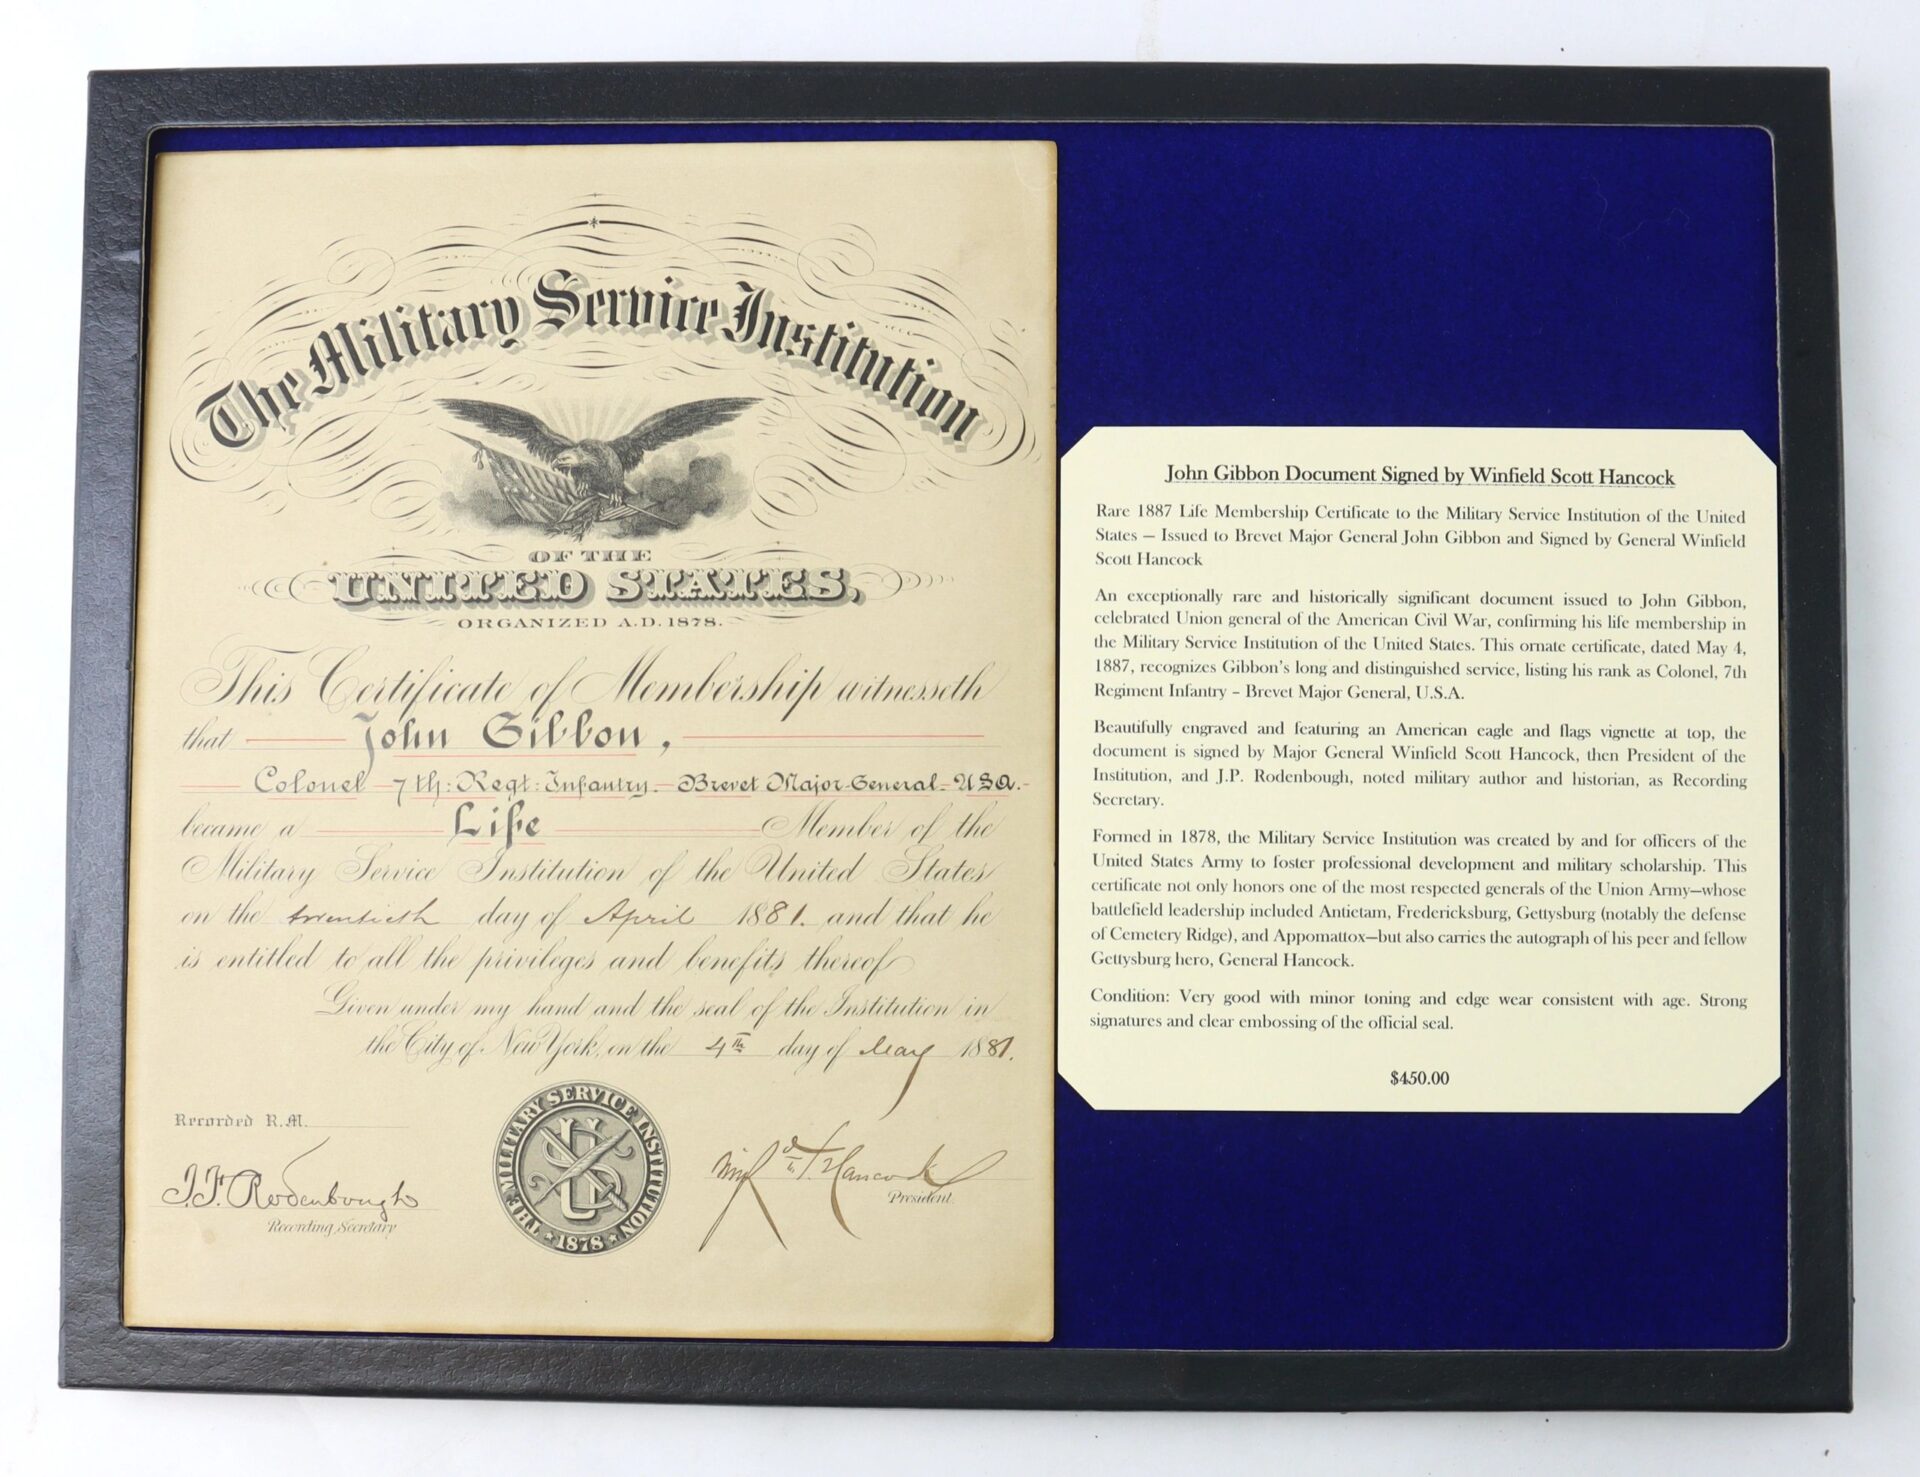 The Military Service Institution
OF THE
UNITED STATES,
ORGANIZED A.D. 1878.
This Certificate of Membership witnesseth
that John Gibbon,
Colonel 7th: Regt: Infantry. Brevet Major-General-USA.
became a Life Member of the
Military Service Institution of the United States
on the twentieth day of April 1881. and that he
is entitled to all the privileges and benefits thereof
Given under my hand and the seal of the Institution in
the City of New York, on the 4th day of May 1881.
Recorded R.M.
T.F. Rodenbough
Recording Secretary
THE MILITARY SERVICE INSTITUTION
US
1878
Winfd S. Hancock
President.
John Gibbon Document Signed by Winfield Scott Hancock
Rare 1887 Life Membership Certificate to the Military Service Institution of the United
States – Issued to Brevet Major General John Gibbon and Signed by General Winfield
Scott Hancock
An exceptionally rare and historically significant document issued to John Gibbon,
celebrated Union general of the American Civil War, confirming his life membership in
the Military Service Institution of the United States. This ornate certificate, dated May 4,
1887, recognizes Gibbon's long and distinguished service, listing his rank as Colonel, 7th
Regiment Infantry – Brevet Major General, U.S.A.
Beautifully engraved and featuring an American eagle and flags vignette at top, the
document is signed by Major General Winfield Scott Hancock, then President of the
Institution, and J.P. Rodenbough, noted military author and historian, as Recording
Secretary.
Formed in 1878, the Military Service Institution was created by and for officers of the
United States Army to foster professional development and military scholarship. This
certificate not only honors one of the most respected generals of the Union Army—whose
battlefield leadership included Antietam, Fredericksburg, Gettysburg (notably the defense
of Cemetery Ridge), and Appomattox—but also carries the autograph of his peer and fellow
Gettysburg hero, General Hancock.
Condition: Very good with minor toning and edge wear consistent with age. Strong
signatures and clear embossing of the official seal.
$450.00